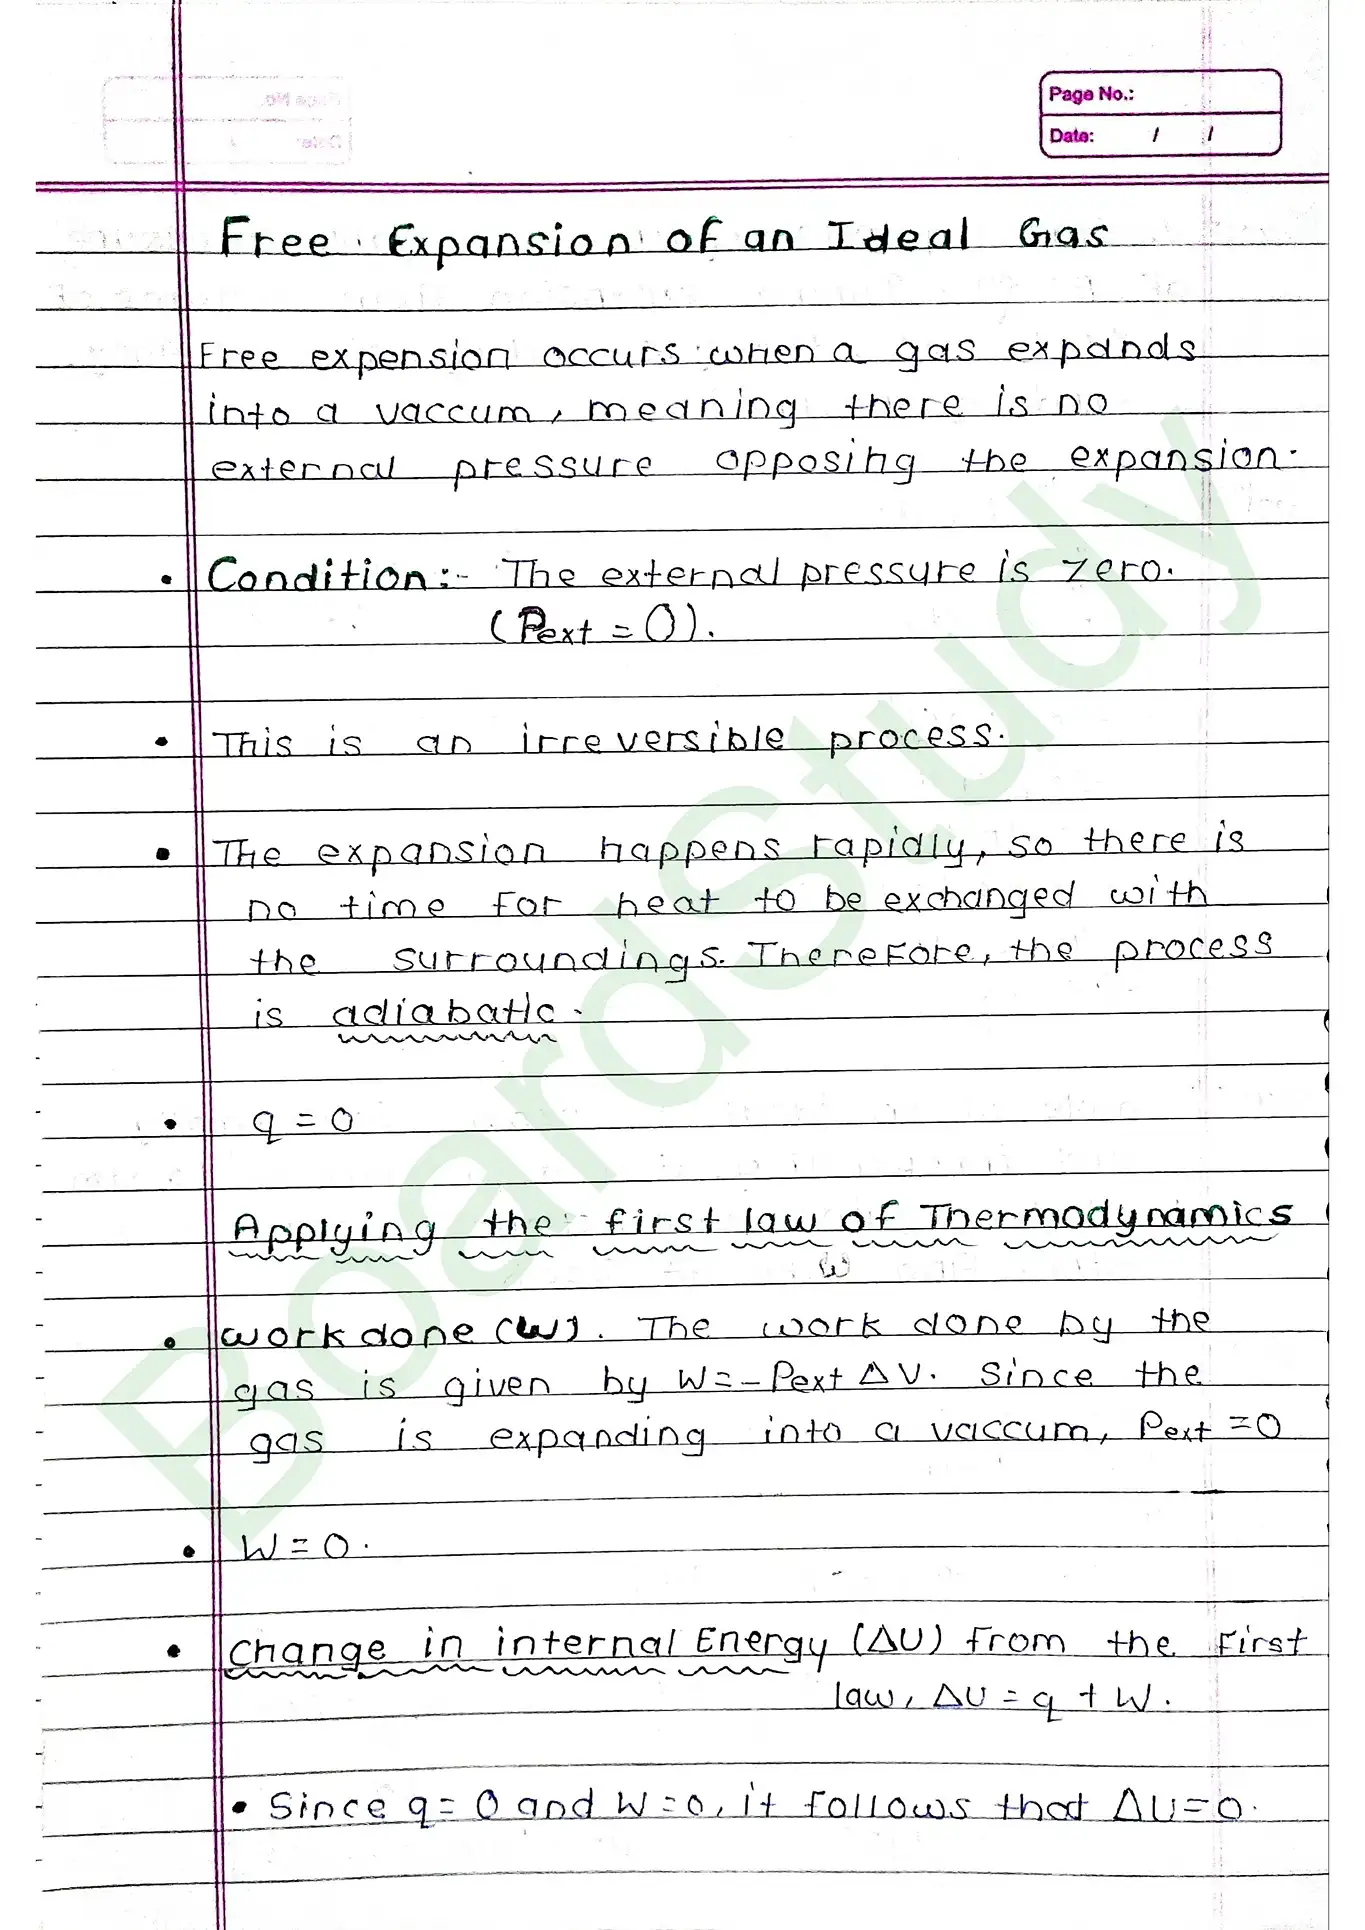 Page No.:
Date: / /
Free Expansion of an Ideal Gas
Free expension occurs when a gas expands
into a vaccum, meaning there is no
external pressure opposing the expansion.
• Condition:- The external pressure is zero.
(Pext = 0).
• This is an irreversible process.
• The expansion happens rapidly, so there is
no time for heat to be exchanged with
the surroundings. Therefore, the process
is adiabatic.
• q = 0
Applying the first law of Thermodynamics
w
• work done (W). The work done by the
gas is given by W = - Pext ΔV. Since the
gas is expanding into a vaccum, Pext = 0
• W = 0.
• Change in internal Energy (ΔU) from the first
law, ΔU = q + W.
• Since q = 0 and W = 0, it follows that ΔU = 0.
BoardStudy